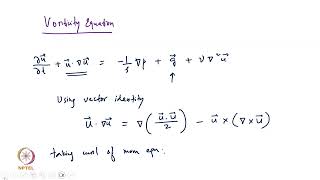 Vorticity Equation
∂u⃗/∂t + u⃗·∇u⃗ = -1/ρ ∇p + g⃗ + ν∇²u⃗
Using vector identity
u⃗·∇u⃗ = ∇(u⃗·u⃗/2) - u⃗×(∇×u⃗)
taking curl of mom eqn:
NPTEL